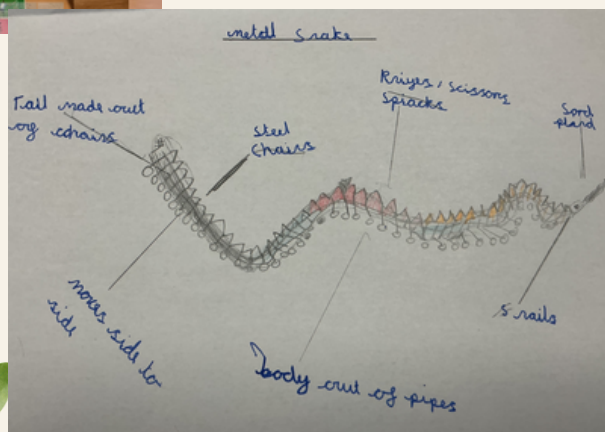 metal Snake
Tail made out
of chains
Steel
Chains
Knives / scissors
Spiacks
Sord
pland
moves side to
side
body out of pipes
5 nails